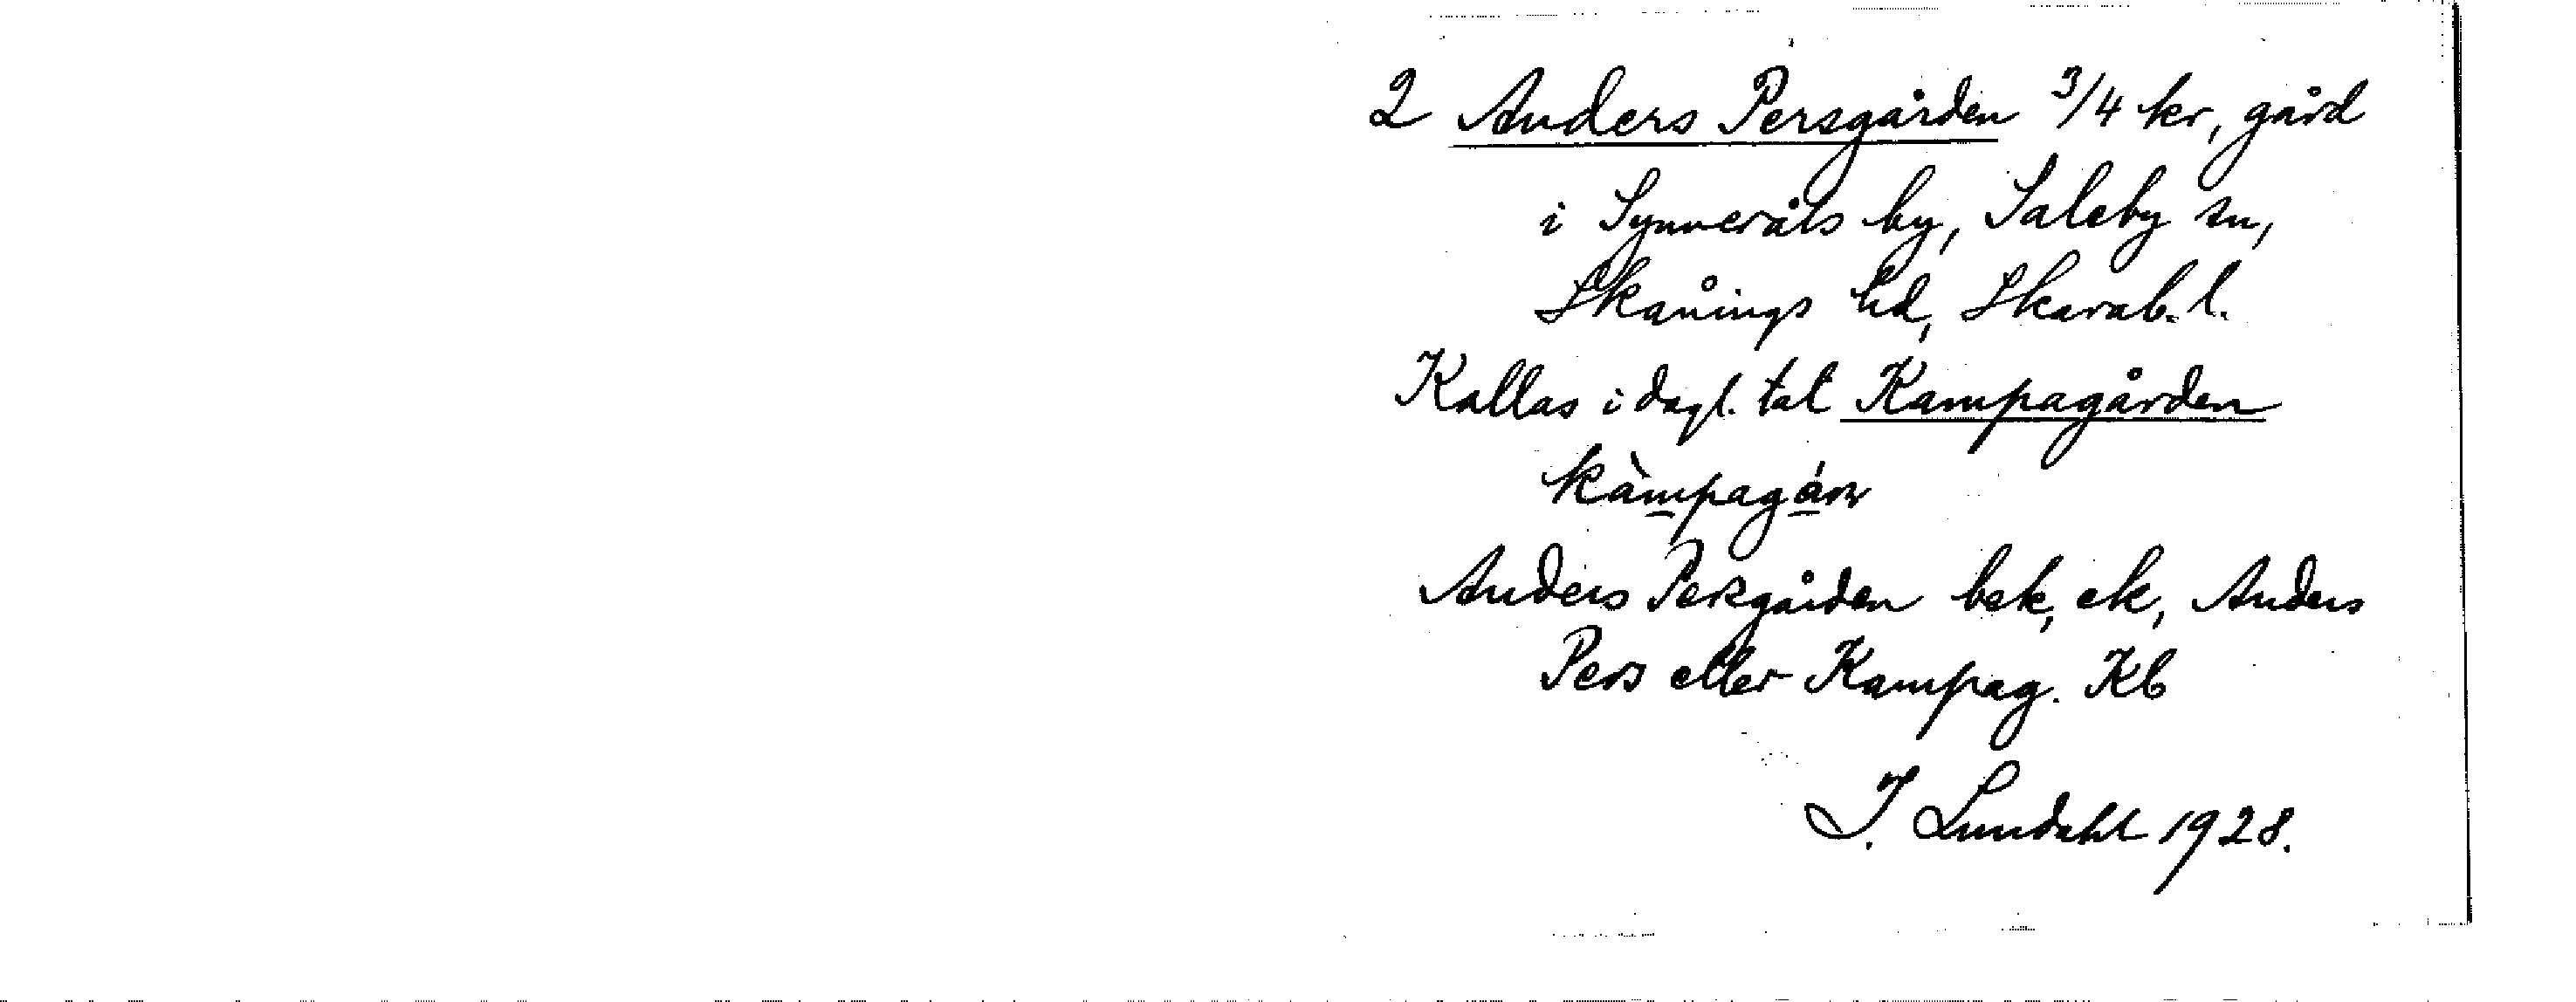 2 Anders Persgården 3/4 kr, gård
i Synneråls by, Saleby sn,
Skånings hd, Skarab. l.
Kallas i dagl. tal Kampagården
kàmpagárn
Anders Persgården bek, ek, Anders
Pers eller Kampag. Kb
I. Lundahl 1928.